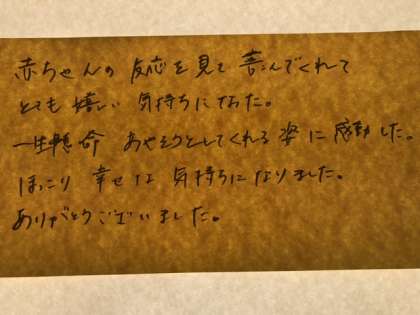 赤ちゃんの反応を見て喜んでくれて
とても嬉しい気持ちになった。
一生懸命あやそうとしてくれる姿に感動した。
ほっこり幸せな気持ちになりました。
ありがとうございました。